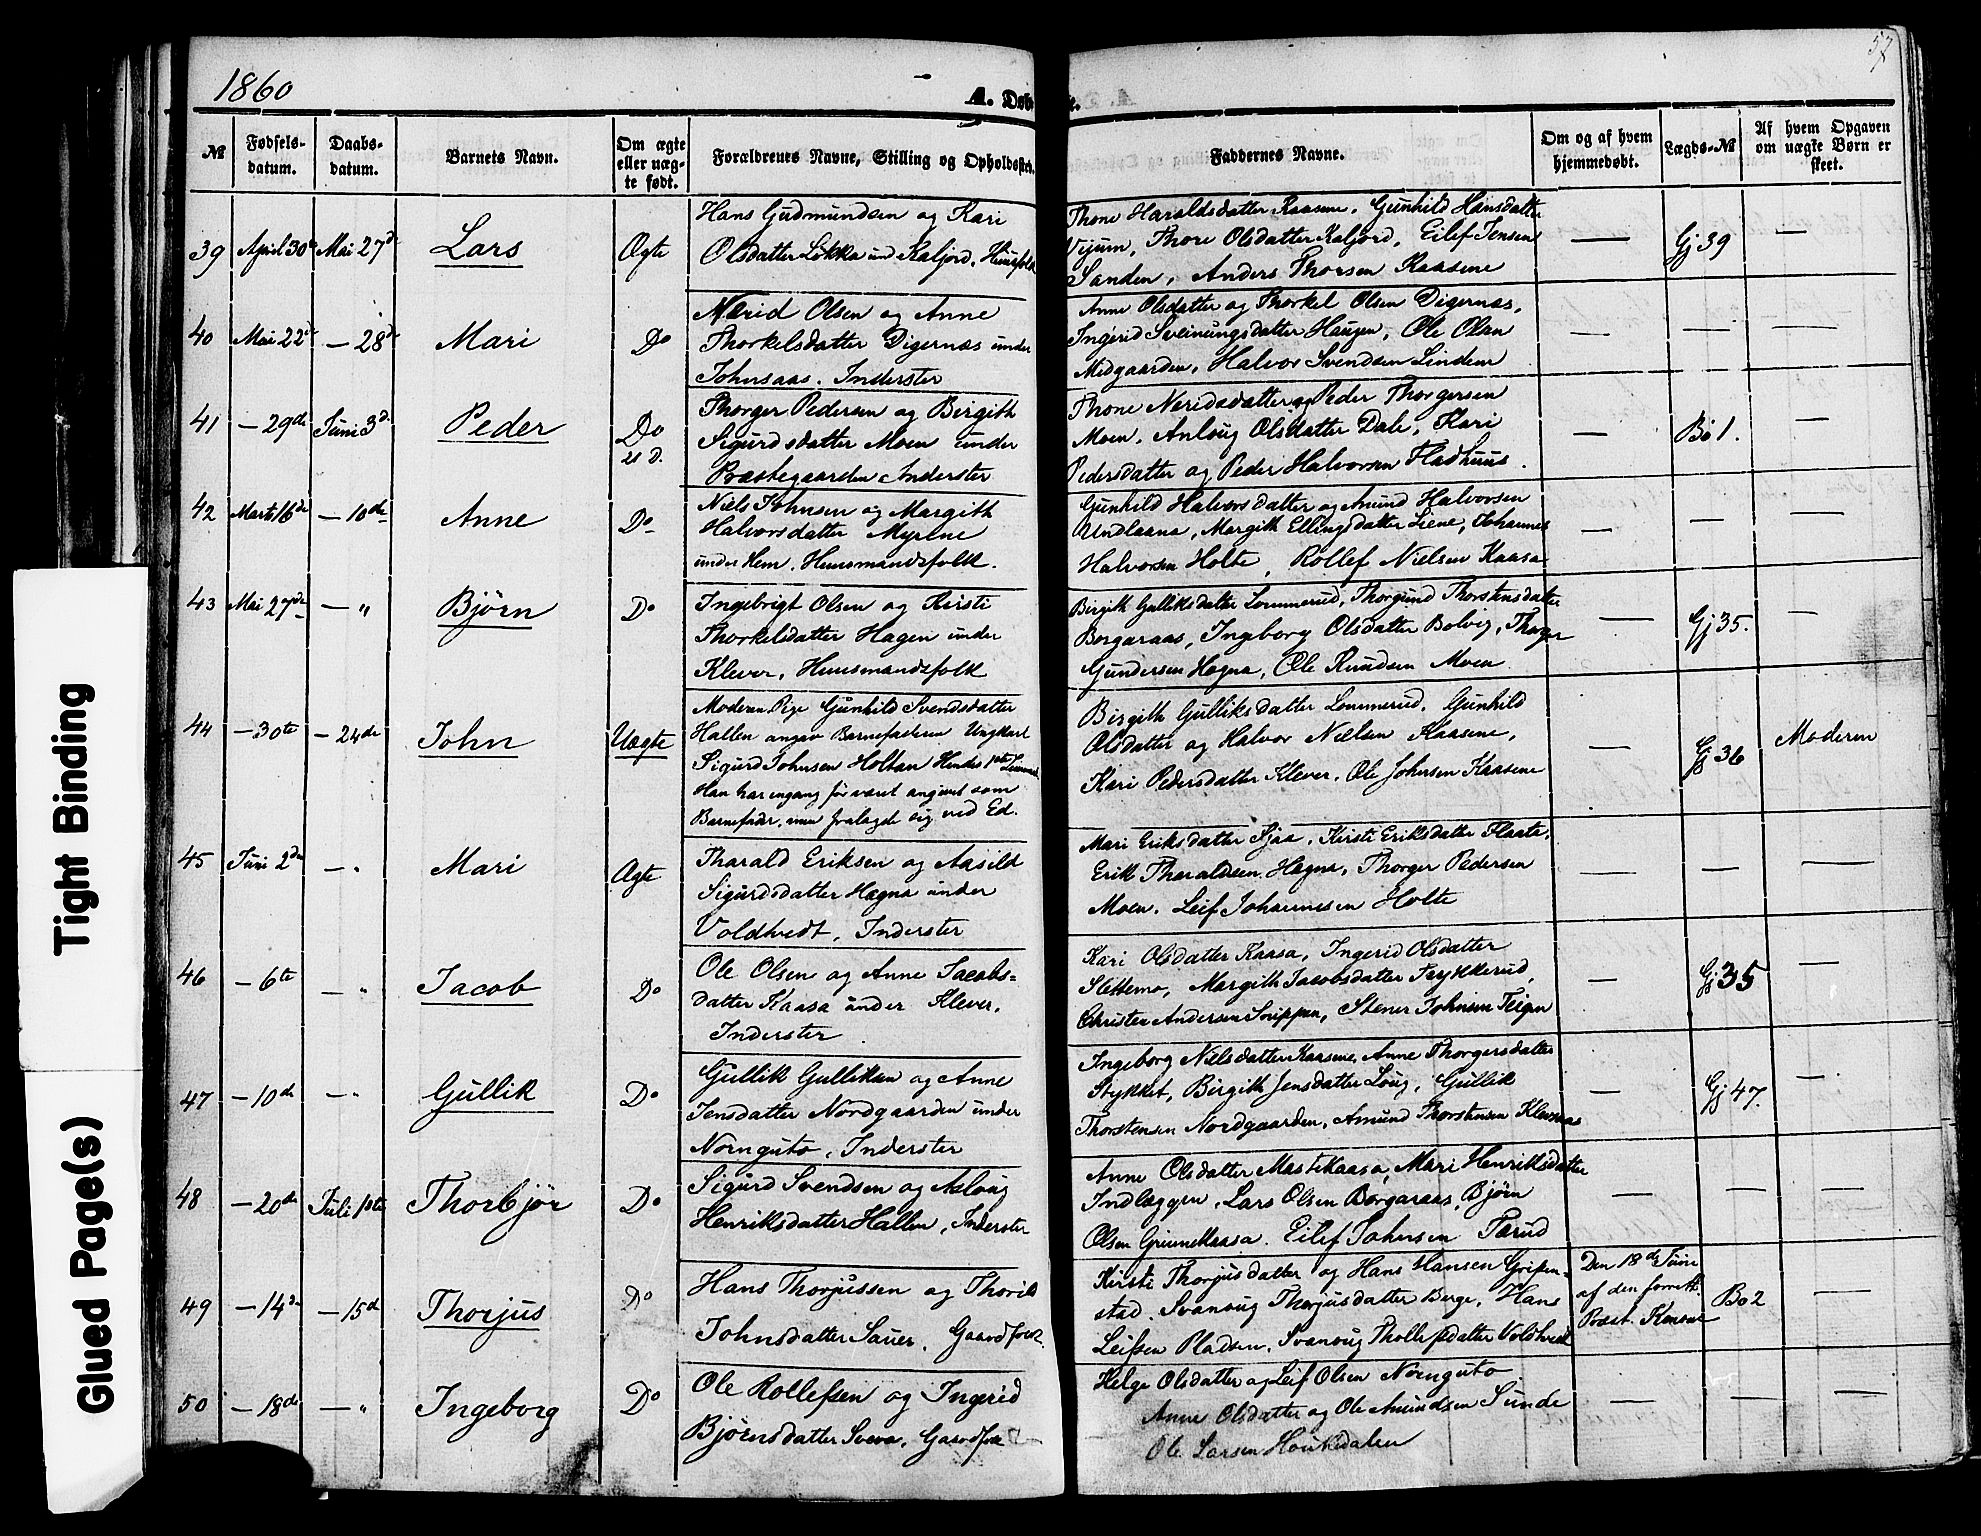 1860
57
A. Døb
t.
№
Fødsels-
datum.
Daabs-
datum.
Barnets Navn.
Om ægte
eller uæg-
te født.
Forældrenes Navne, Stilling og Opholdssted.
Faddernes Navne.
Om og af hvem
hjemmedøbt.
Lægds-№
Af hvem Opgaven
om uægte Børn er
skeet.
39 April 30te Mai 27de Lars Ægte
Hans Gudmundsen og Kari
Olsdatter Løkka und Kaljord, Huusfolk
Thone Haraldsdatter Kaasene, Gunhild Hansdatter
Vijum, Thore Olsdatter Kaljord, Eilef Jensen
Sanden, Anders Thorsen Kaasene
— Gj 39 —
40 Mai 22de — 28de Mari Do
Nærid Olsen og Anne
Thorkelsdatter Digernæs under
Johnsaas. Inderster
Anne Olsdatter og Thorkel Olsen Digernæs,
Ingerid Sveinungsdatter Haugen, Ole Olsen
Midgaarden, Halvor Svendsen Lindem
— — —
41 — 29de Juni 3de Peder Do
21 D.
Thorger Pedersen og Birgith
Sigurdsdatter Moen under
Præstegaarden Inderster
Thone Neridsdatter og Peder Thorgersen
Moen, Anloug Olsdatter Dale, Kari
Pedersdatter og Peder Halvorsen Fladhuus.
— Bø 1. —
42 Marts 16de — 10de Anne Do
Niels Johnsen og Margith
Halvorsdatter Myrene
under Hem. Huusmandsfolk.
Gunhild Halvorsdatter og Amund Halvorsen
Undlaana, Margith Ellingsdatter Liene, Johannes
Halvorsen Holte, Rollef Nielsen Kaasa
— — —
43 Mai 27de — " Bjørn Do
Ingebrigt Olsen og Kirsti
Thorkelsdatter Hagen under
Klever, Huusmandsfolk
Birgith Gulliksdatter Lommerud, Thorgund Thorstensdatter
Borgaraas, Ingeborg Olsdatter Bolvig, Thorger
Gundersen Hegna, Ole Knudsen Moen.
— Gj 35. —
44 — 30te — 24de John Uægte
Moderen Pige Gunhild Svendsdatter
Hallen angav Barnefaderen Ungkarl
Sigurd Johnsen Holtan Hendes 1ste Leiermaal
Han har engang før været angivet som
Barnefader, men fralagde sig ved Ed.
Birgith Gulliksdatter Lommerud, Gunhild
Olsdatter og Halvor Nielsen Kaasene,
Kari Pedersdatter Klever, Ole Johnsen Kaasene
— Gj 36 Moderen
45 Juni 2den — " Mari Ægte
Tharald Eriksen og Aasild
Sigurdsdatter Hegna under
Voldtvedt, Inderster
Mari Eriksdatter Sjaa, Kirsti Eriksdatter Flaata,
Erik Tharaldsen Hegna, Thorger Pedersen
Moen, Leif Johannesen Holte
— — —
46 — 6te — " Jacob Do
Ole Olsen og Anne Jacobs-
datter Kaasa under Klever,
Inderster.
Kari Olsdatter Kaasa, Ingerid Olsdatter
Slettemo, Margith Jacobsdatter Trykkerud,
Christen Andersen Snippen, Stener Johnsen Teigen
— Gj 35 —
47 — 10de — " Gullik Do
Gullik Gulliksen og Anne
Jensdatter Nordgaarden under
Nornguto, Inderster
Ingeborg Nielsdatter Kaasene, Anne Thorgersdatter
Stykket, Birgith Jensdatter Loug, Gullik
Thorstensen Nordgaarden, Amund Thorstensen
— Gj 47. —
48 — 20de Juli 1ste Thorbjør Do
Sigurd Svendsen og Asloug
Henriksdatter Hallen, Inderster
Anne Olsdatter Mastekaasa, Mari Henriksdatter
Indlæggen, Lars Olsen Borgaraas, Bjørn
Olsen Grimekaasa, Eilef Johnsen Tarud
— — —
49 — 14de — 15d Thorjus Do
Hans Thorjussen og Thorild
Johnsdatter Sauer, Gaardfolk.
Kirsti Thorjusdatter og Hans Hansen Gripen-
stad. Svanoug Thorjusdatter Berge, Hans
Leifsen Pladsen, Svanoug Thollefsdatter Voldtvedt
Den 18de Juni
af den forrett.
Præst. Kensar
Bø 2 —
50 — 18de — " Ingeborg Do
Ole Rollefsen og Ingerid
Bjørnsdatter Sveva, Gaardfolk
Helge Olsdatter og Leif Olsen Nornguto
Anne Olsdatter og Ole Amundsen Sunde
Ole Larsen Haukedalen
— — —
Tight Binding
Glued Page(s)